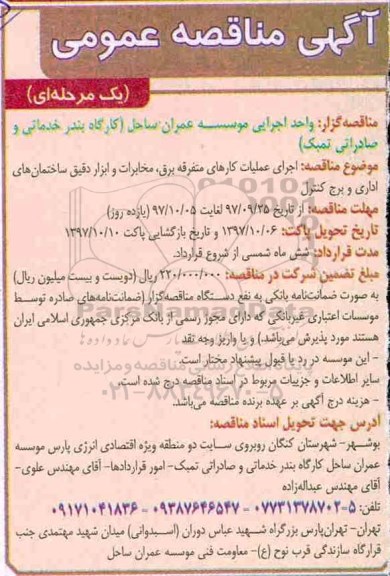 آگهی مناقصه عمومی
(یک مرحله‌ای)
مناقصه‌گزار: واحد اجرایی موسسه عمران ساحل (کارگاه بندر خدماتی و
صادراتی تمبک)
موضوع مناقصه: اجرای عملیات کارهای متفرقه برق، مخابرات و ابزار دقیق ساختمان‌های
اداری و برج کنترل
مهلت مناقصه: از تاریخ ۹۷/۰۹/۲۵ لغایت ۹۷/۱۰/۰۵ (یازده روز)
تاریخ تحویل پاکت: ۱۳۹۷/۱۰/۰۶ و تاریخ بازگشایی پاکت ۱۳۹۷/۱۰/۱۰
مدت قرارداد: شش ماه شمسی از شروع قرارداد.
مبلغ تضمین شرکت در مناقصه: ۲۲۰/۰۰۰/۰۰۰ ریال (دویست و بیست میلیون ریال)
به صورت ضمانت‌نامه بانکی به نفع دستگاه مناقصه‌گزار (ضمانت‌نامه‌های صادره توسط
موسسات اعتباری غیربانکی که دارای مجوز رسمی از بانک مرکزی جمهوری اسلامی ایران
هستند مورد پذیرش می‌باشد.) و یا واریز وجه نقد
- این موسسه در رد یا قبول پیشنهاد مختار است.
سایر اطلاعات و جزییات مربوط در اسناد مناقصه درج شده است.
- هزینه درج آگهی بر عهده برنده مناقصه می‌باشد.
آدرس جهت تحویل اسناد مناقصه:
بوشهر- شهرستان کنگان روبروی سایت دو منطقه ویژه اقتصادی انرژی پارس موسسه
عمران ساحل کارگاه بندر خدماتی و صادراتی تمبک- امور قراردادها- آقای مهندس علوی-
آقای مهندس عبداله‌زاده
تلفن: ۵-۰۷۷۳۱۳۷۸۷۰۲ - ۰۹۳۸۷۶۴۶۵۴۷ - ۰۹۱۷۱۰۴۱۸۳۶
تهران- تهران‌پارس بزرگراه شهید عباس دوران (استبدوانی) میدان شهید مهتمدی جنب
قرارگاه سازندگی قرب نوح (ع)- معاومت فنی موسسه عمران ساحل